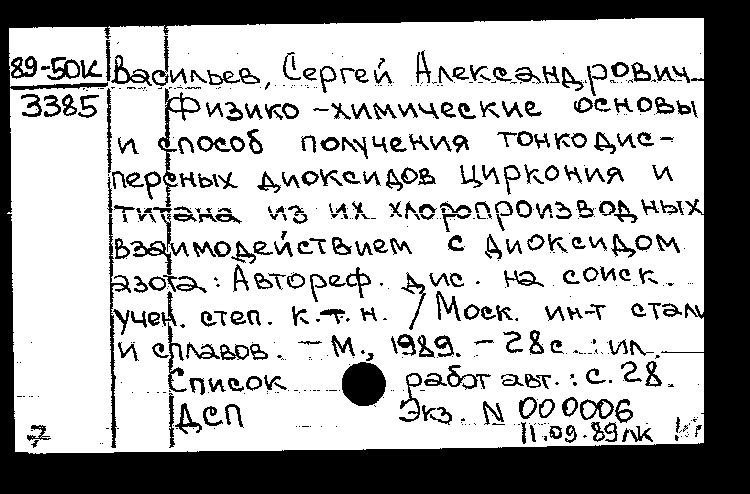 89-50К Васильев, Сергей Александрович
3385 Физико-химические основы
и способ получения тонкодис-
персных диоксидов циркония и
титана из их хлоропроизводных
взаимодействием с диоксидом
азота: Автореф. дис. на соиск.
учен. степ. к.т.н. / Моск. ин-т стали
и сплавов. - М., 1989. - 28 с. : ил.
Список работ авт.: с. 28.
ДСП Экз. N 000006
7 11.09.89 ЛК